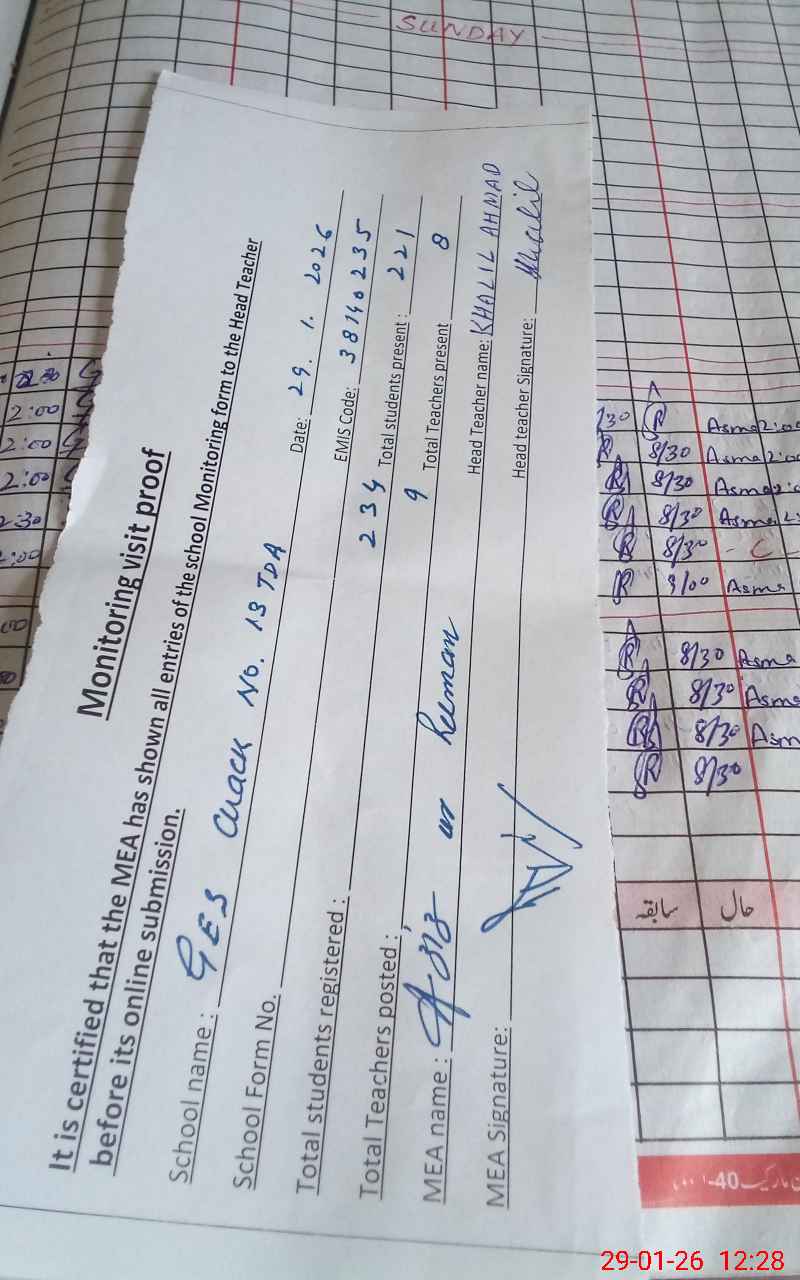 SUNDAY
Monitoring visit proof
It is certified that the MEA has shown all entries of the school Monitoring form to the Head Teacher
before its online submission.
School name : GES Chack No. 13 TDA Date: 29. 1. 2026
School Form No. EMIS Code: 38140235
Total students registered : 234 Total students present : 221
Total Teachers posted : 9 Total Teachers present 8
MEA name : Aziz ur Rehman Head Teacher name: KHALIL AHMAD
MEA Signature: Head teacher Signature: Khalil
2:00
2:00
2:00
2:30
2:00
8/30 Asma
8/30 Asma
8/30 Asma
8/30 - C -
9/00 Asma
8/30 Asma
8/30 Asma
8/30 Asm
8/30
سابقہ حال
29-01-26 12:28